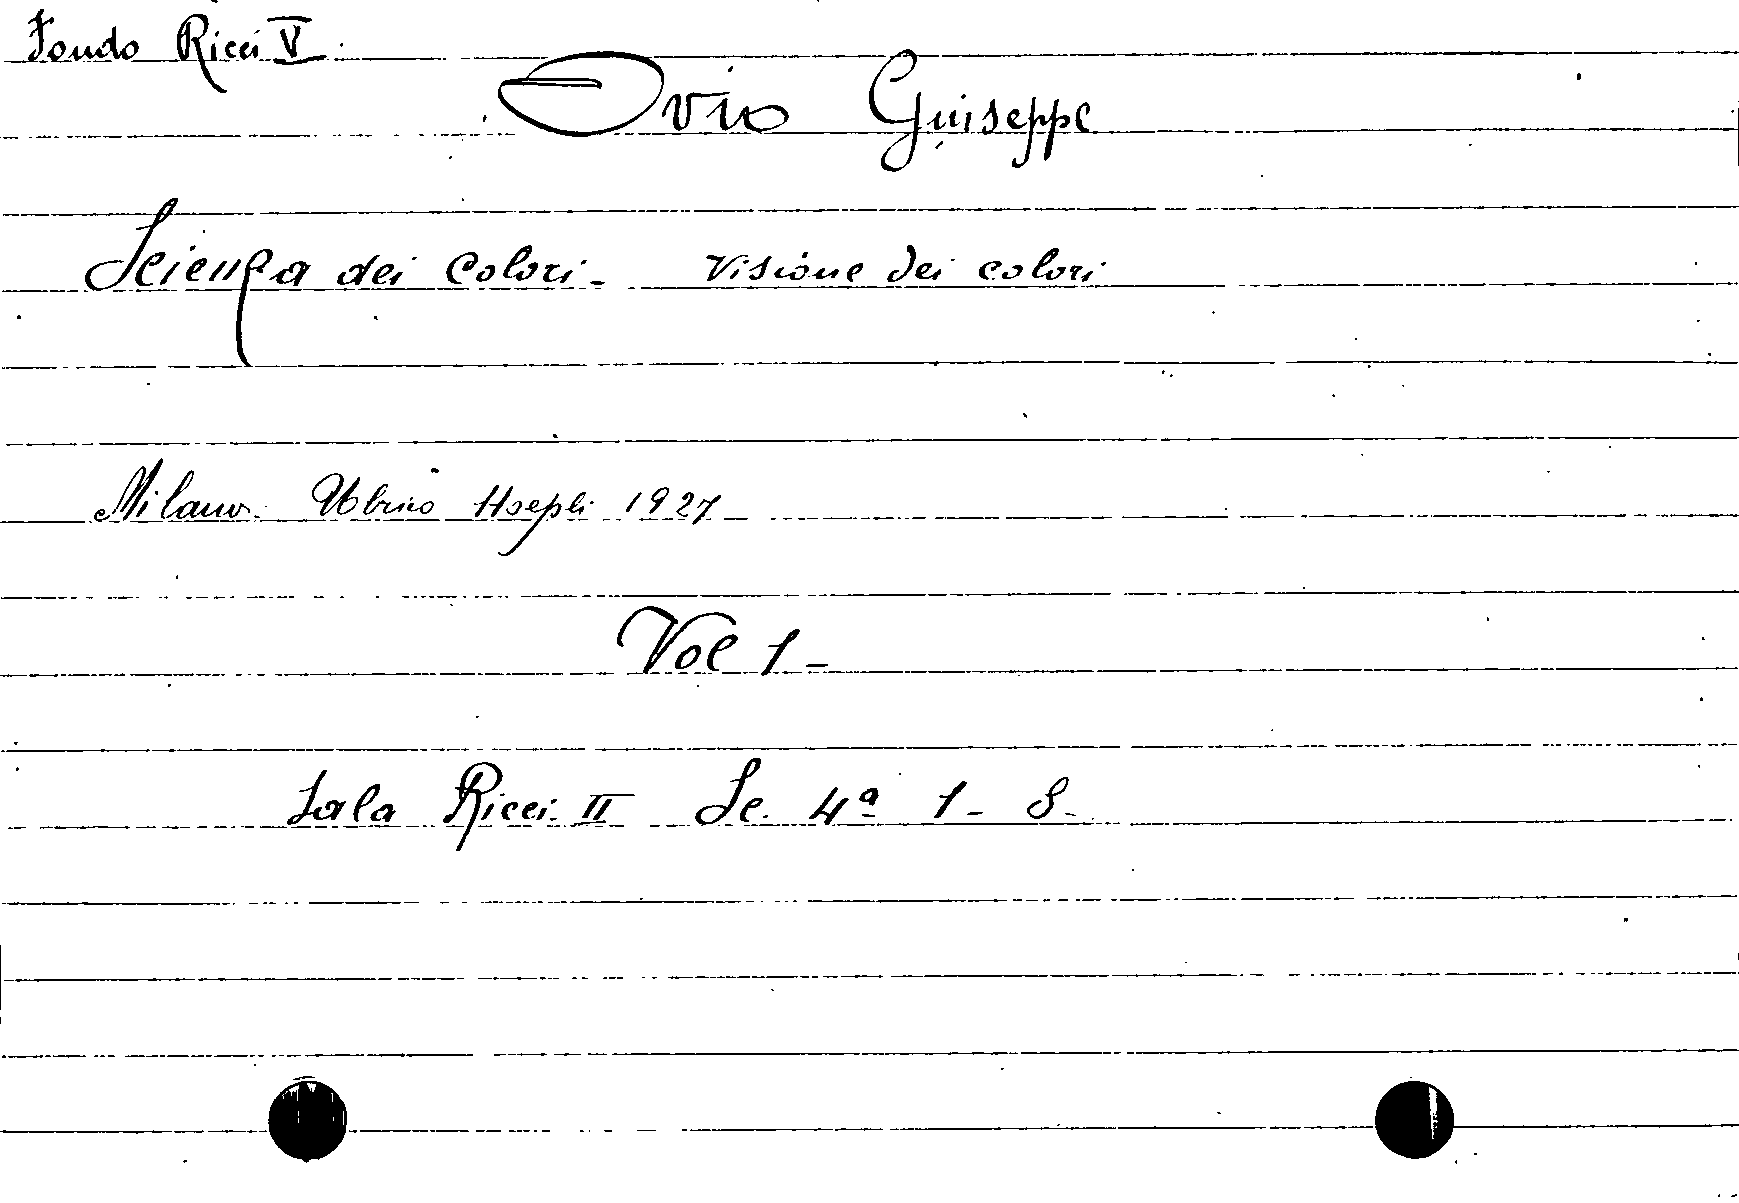 Fondo Ricci V.
Ovio Giuseppe
Scienza dei Colori - Visione dei colori
Milano. Ulrico Hoepli 1927
Vol 1 -
Sala Ricci II Sc. 4ª 1 - 8 -